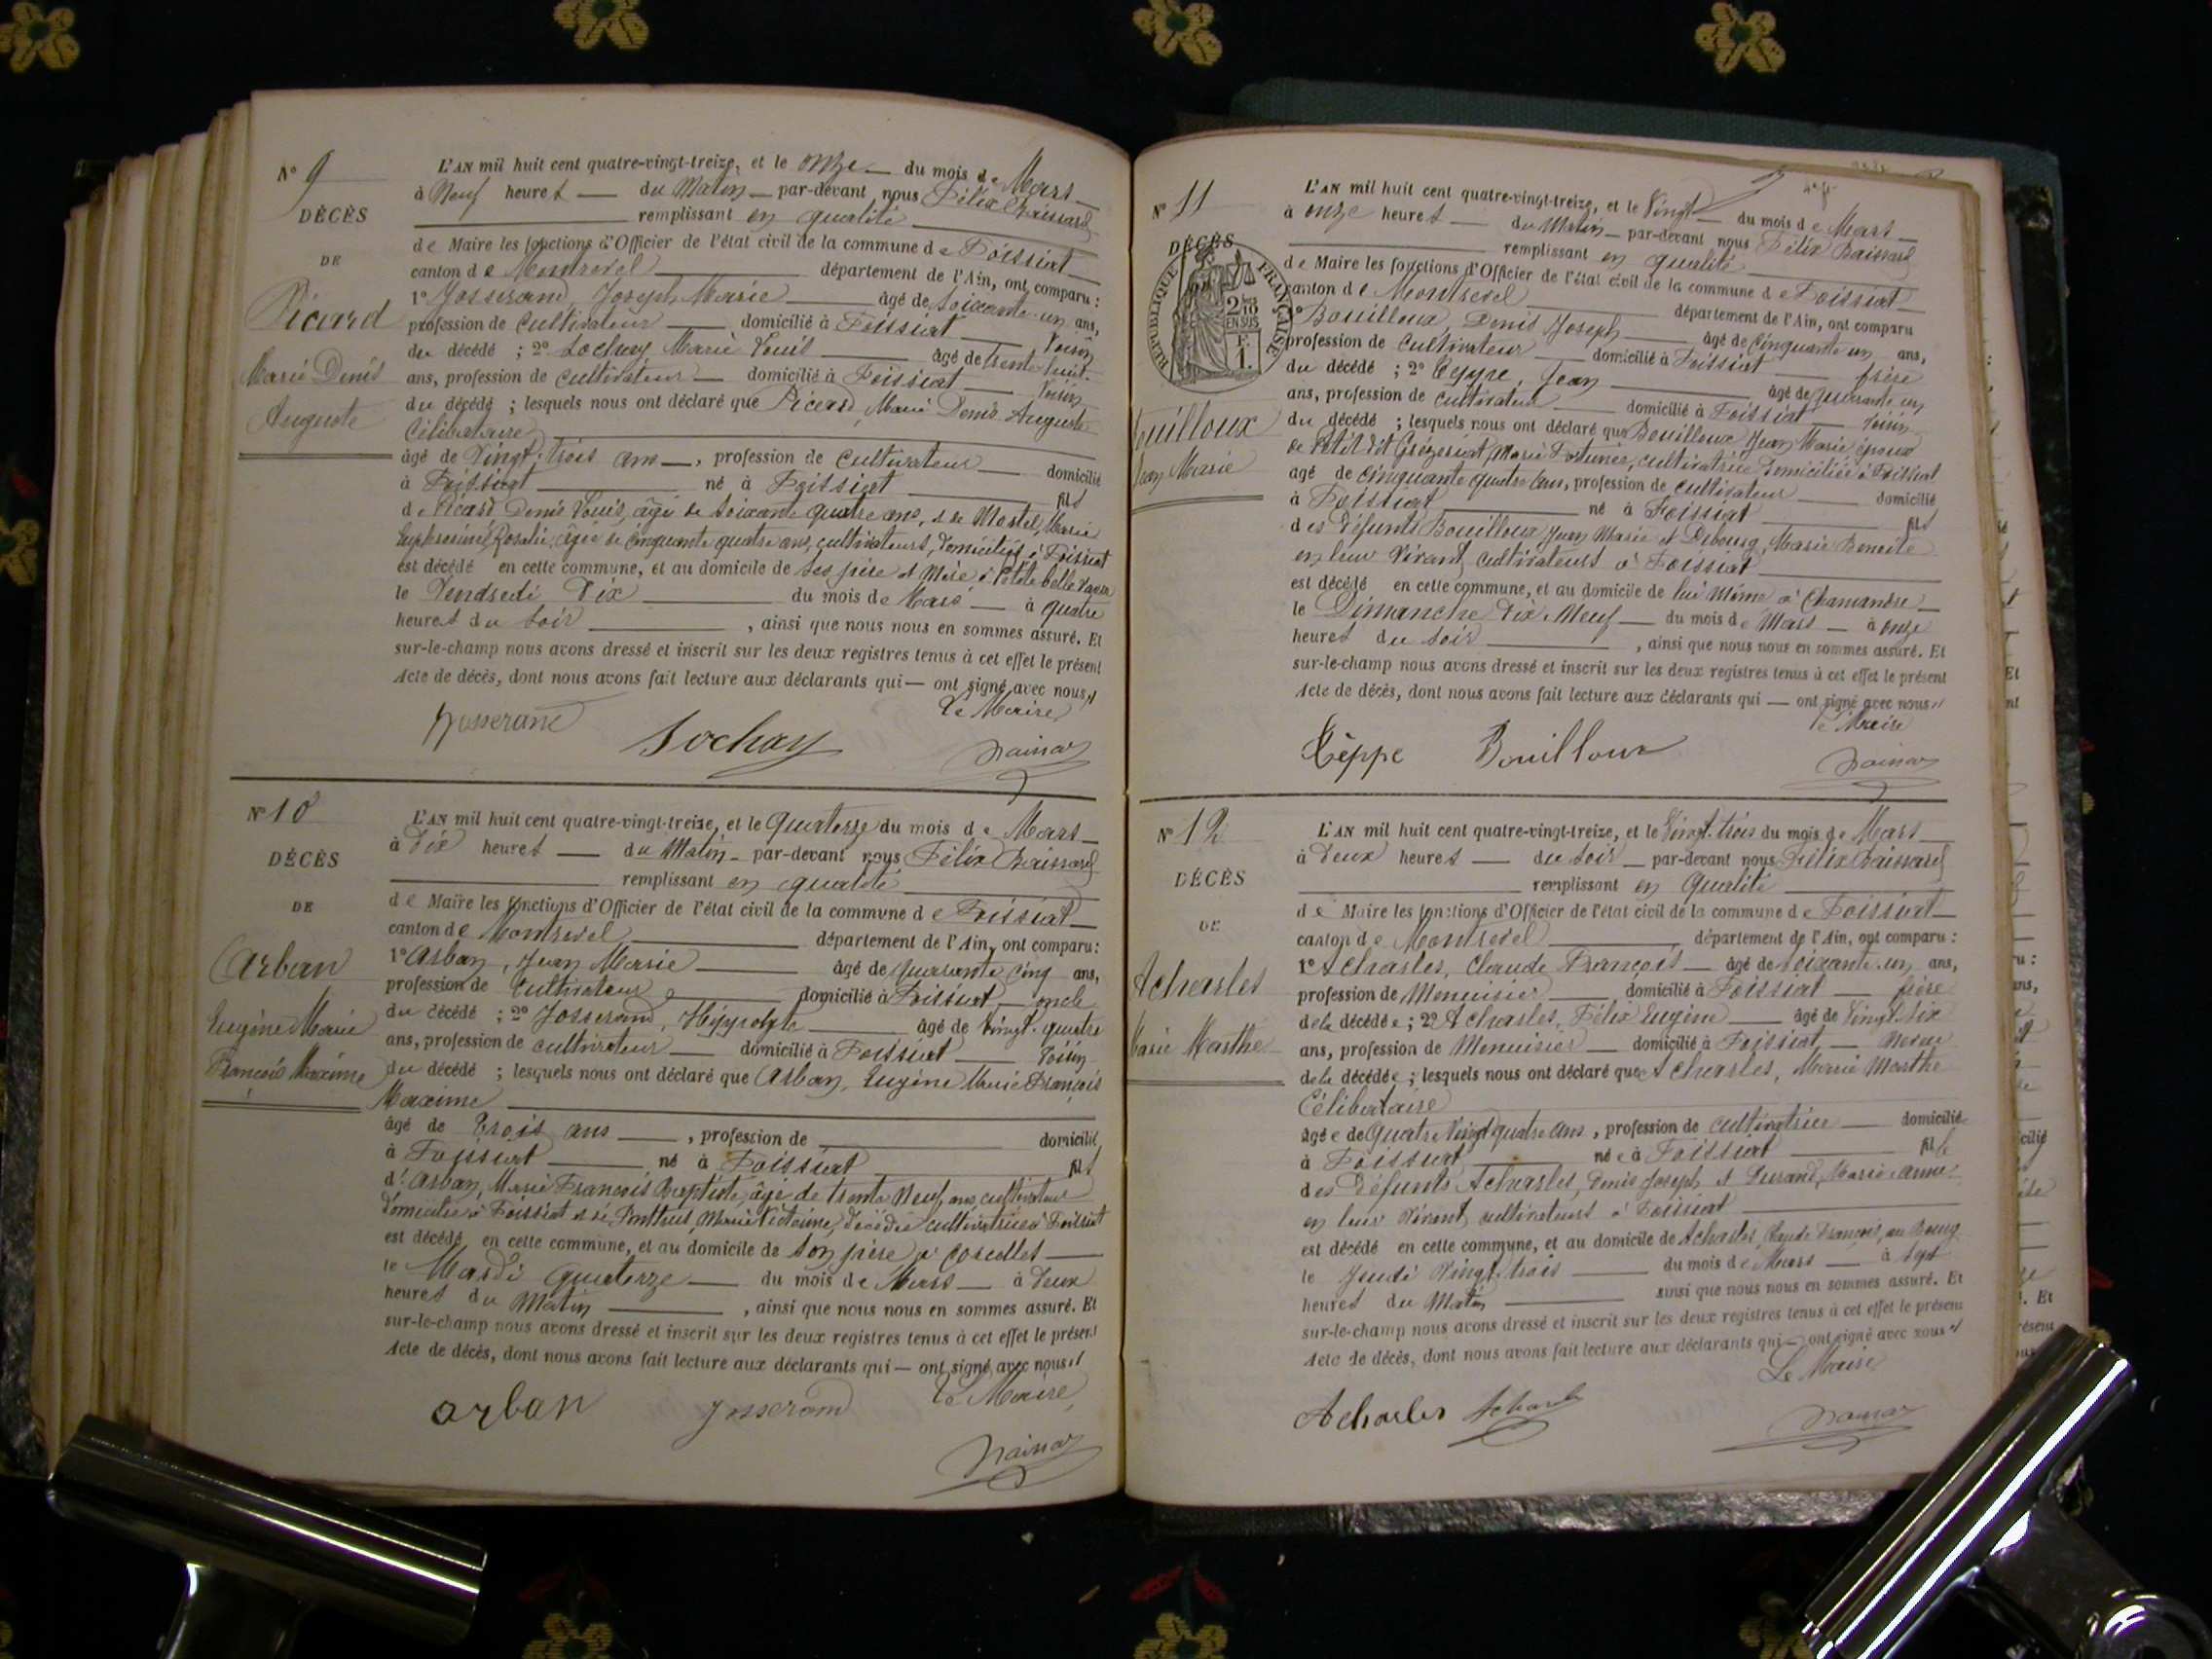 N° 9
DÉCÈS
DE
Picard
Marie Denis
Auguste
L'AN mil huit cent quatre-vingt-treize, et le onze du mois de Mars
à Neuf heures du Matin par-devant nous Félix
remplissant en qualité
de Maire les fonctions d'Officier de l'état civil de la commune de Foissiat
canton de Montrevel département de l'Ain, ont comparu :
1° Josserand, Joseph Marie âgé de soixante-un ans,
profession de Cultivateur domicilié à Foissiat Voisin
du décédé ; 2° Sochay, Marie Louis âgé de trente huit
ans, profession de cultivateur domicilié à Foissiat Voisin
du décédé ; lesquels nous ont déclaré que Picard, Marie Denis Auguste
Célibataire
âgé de Vingt-trois ans, profession de Cultivateur domicilié
à Foissiat né à Foissiat fils
de Picard Denis Louis, âgé de soixante quatre ans, et de Marie
Rosalie, âgée de cinquante quatre ans, cultivateurs, domiciliés à Foissiat
est décédé en cette commune, et au domicile de ses père et Mère à
le Vendredi Dix du mois de Mars à quatre
heures du soir , ainsi que nous nous en sommes assuré. Et
sur-le-champ nous avons dressé et inscrit sur les deux registres tenus à cet effet le présent
Acte de décès, dont nous avons fait lecture aux déclarants qui — ont signé avec nous
Le Maire
Josserand Sochay
N° 10
DÉCÈS
DE
Arban
Eugène Marie
François Maxime
L'AN mil huit cent quatre-vingt-treize, et le Quatorze du mois de Mars
à Dix heures du Matin par-devant nous Félix
remplissant en qualité
de Maire les fonctions d'Officier de l'état civil de la commune de Foissiat
canton de Montrevel département de l'Ain, ont comparu :
1° Arban, Jean Marie âgé de quarante cinq ans,
profession de Cultivateur domicilié à Foissiat oncle
du décédé ; 2° Josserand, Hippolyte âgé de Vingt-quatre
ans, profession de cultivateur domicilié à Foissiat Voisin
du décédé ; lesquels nous ont déclaré que Arban, Eugène Marie François
Maxime
âgé de Trois ans , profession de domicilié
à Foissiat né à Foissiat fils
d'Arban, Marie François Baptiste, âgé de trente Neuf ans, cultivateur
domicilié à Foissiat et de Marie décédée cultivatrice à Foissiat
est décédé en cette commune, et au domicile de son père à
le Mardi quatorze du mois de Mars à Deux
heures du Matin , ainsi que nous nous en sommes assuré. Et
sur-le-champ nous avons dressé et inscrit sur les deux registres tenus à cet effet le présent
Acte de décès, dont nous avons fait lecture aux déclarants qui — ont signé avec nous
Le Maire
arban Josserand
N° 11
DÉCÈS
RÉPUBLIQUE FRANÇAISE
2/10 EN SUS
F. 1.
Jean Marie
L'AN mil huit cent quatre-vingt-treize, et le Vingt du mois de Mars
à onze heures du Matin par-devant nous Félix
remplissant en qualité
de Maire les fonctions d'Officier de l'état civil de la commune de Foissiat
canton de Montrevel département de l'Ain, ont comparu
1° Bouilloux, Denis Joseph âgé de cinquante un ans,
profession de Cultivateur domicilié à Foissiat frère
du décédé ; 2° Jean âgé de quarante un
ans, profession de cultivateur domicilié à Foissiat voisin
du décédé ; lesquels nous ont déclaré que Bouilloux Jean Marie époux
de Petit dit Marie cultivatrice domiciliée à Foissiat
âgé de cinquante quatre ans, profession de cultivateur domicilié
à Foissiat né à Foissiat fils
des défunts Bouilloux Jean Marie et Debourg, Marie Benoîte
en leur Vivant cultivateurs à Foissiat
est décédé en cette commune, et au domicile de lui Même à
le Dimanche Dix-Neuf du mois de Mars à onze
heures du soir , ainsi que nous nous en sommes assuré. Et
sur-le-champ nous avons dressé et inscrit sur les deux registres tenus à cet effet le présent
Acte de décès, dont nous avons fait lecture aux déclarants qui — ont signé avec nous
Le Maire
Bouilloux
N° 12
DÉCÈS
DE
Acharles
Marie Marthe
L'AN mil huit cent quatre-vingt-treize, et le Vingt-trois du mois de Mars
à Deux heures du soir par-devant nous Félix
remplissant en Qualité
de Maire les fonctions d'Officier de l'état civil de la commune de Foissiat
canton de Montrevel département de l'Ain, ont comparu :
1° Acharles, Claude François âgé de soixante-un ans,
profession de Menuisier domicilié à Foissiat frère
de la décédée ; 2° Acharles, Félix Eugène âgé de Vingt-six
ans, profession de Menuisier domicilié à Foissiat Neveu
de la décédée ; lesquels nous ont déclaré que Acharles, Marie Marthe
Célibataire
âgée de Quatre Vingt quatre ans, profession de cultivatrice domiciliée
à Foissiat née à Foissiat fille
des Défunts Acharles, Denis Joseph et Durand, Marie Anne
en leur Vivant cultivateurs à Foissiat
est décédé en cette commune, et au domicile de Acharles, Claude François, au Bourg
le Jeudi Vingt-trois du mois de Mars à sept
heures du Matin ainsi que nous nous en sommes assuré. Et
sur-le-champ nous avons dressé et inscrit sur les deux registres tenus à cet effet le présent
Acte de décès, dont nous avons fait lecture aux déclarants qui — ont signé avec nous
Le Maire
Acharles Acharles